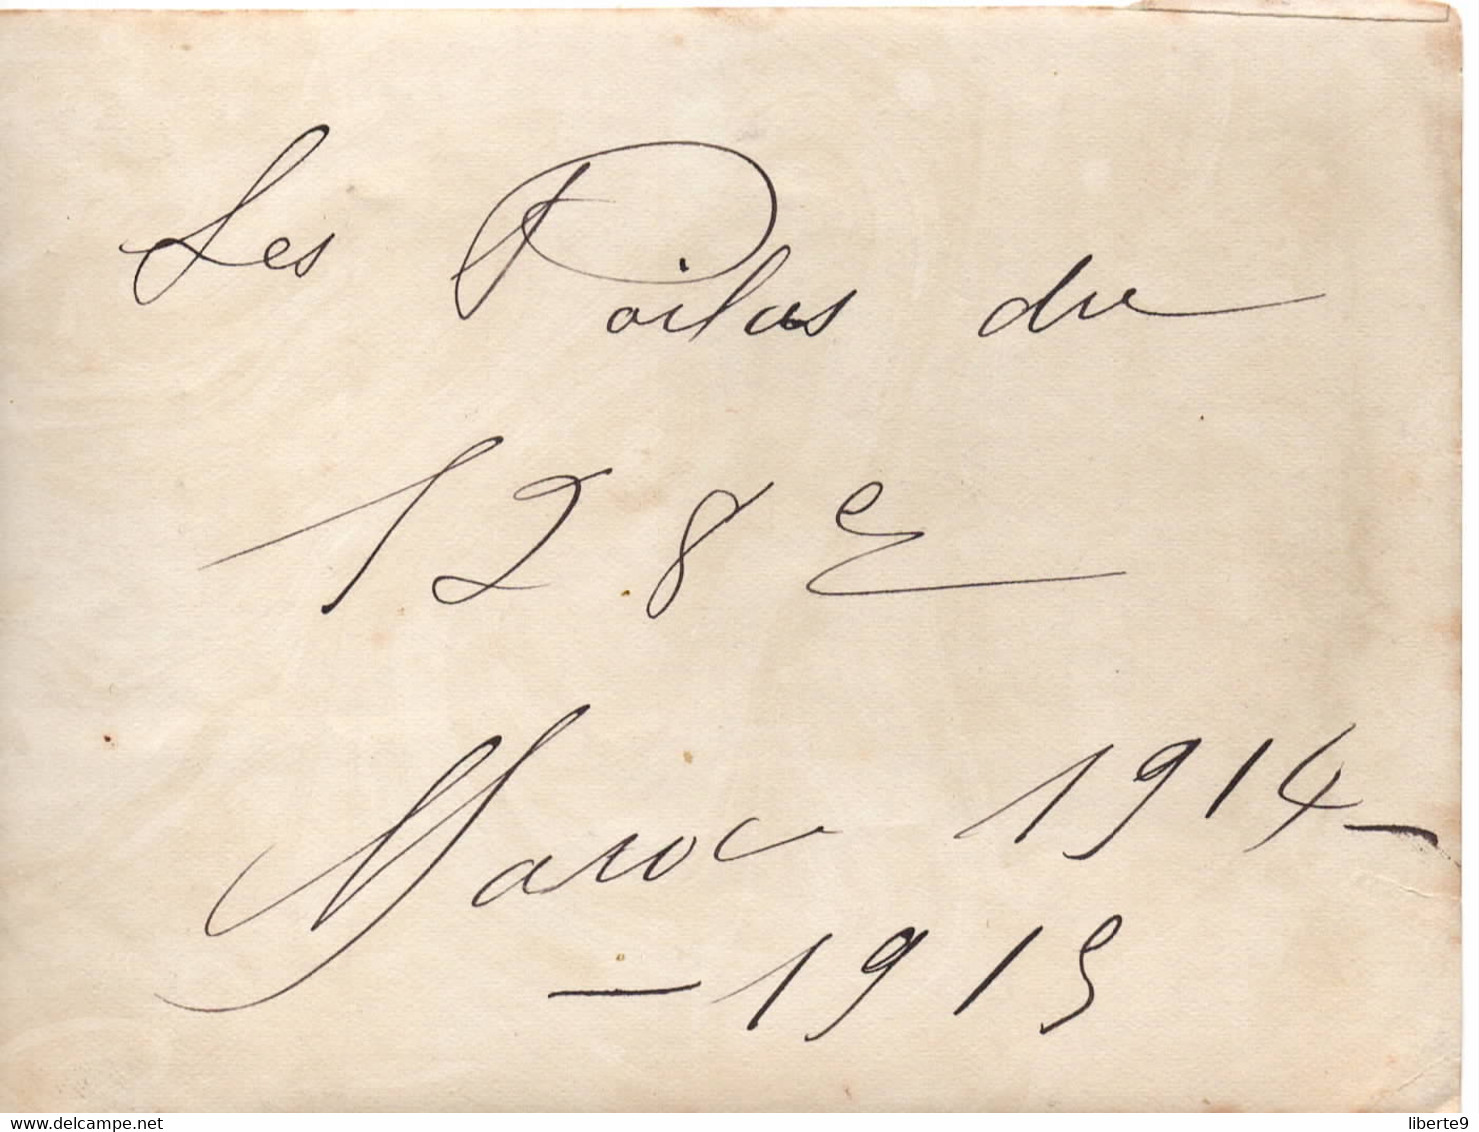 Les Poilus du
128e
Maroc 1914-
-1915
delcampe.net
liberte9